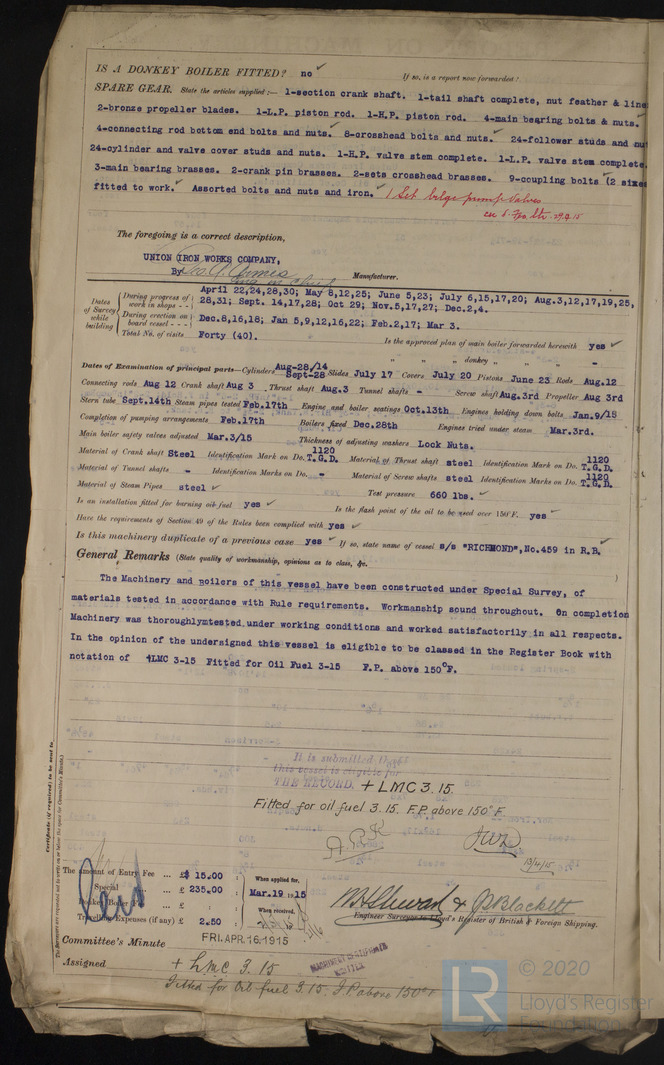 IS A DONKEY BOILER FITTED? no ✓ If so, is a report now forwarded?
SPARE GEAR. State the articles supplied:— 1-section crank shaft. 1-tail shaft complete, nut feather & line
2-bronze propeller blades. 1-L.P. piston rod. 1-H.P. piston rod. 4-main bearing bolts & nuts.
4-connecting rod bottom end bolts and nuts. 8-crosshead bolts and nuts. 24-follower studs and nut
24-cylinder and valve cover studs and nuts. 1-H.P. valve stem complete. 1-L.P. valve stem complete.
3-main bearing brasses. 2-crank pin brasses. 2-sets crosshead brasses. 9-coupling bolts (2 sizes
fitted to work. Assorted bolts and nuts and iron. 1 Set bilge pump valves
29.4.15
The foregoing is a correct description,
UNION IRON WORKS COMPANY,
By Manufacturer.
Dates of Survey while building
During progress of work in shops - - April 22,24,28,30; May 8,12,25; June 5,23; July 6,15,17,20; Aug.3,12,17,19,25,
28,31; Sept. 14,17,28; Oct 29; Nov.5,17,27; Dec.2,4.
During erection on board vessel - - - Dec.8,16,18; Jan 5,9,12,16,22; Feb.2,17; Mar 3.
Total No. of visits Forty (40). Is the approved plan of main boiler forwarded herewith yes ✓
" " " donkey " " " -
Dates of Examination of principal parts—Cylinders Aug-28/14 Sept-28 Slides July 17 Covers July 20 Pistons June 23 Rods Aug.12
Connecting rods Aug 12 Crank shaft Aug 3 Thrust shaft Aug.3 Tunnel shafts - Screw shaft Aug.3rd Propeller Aug 3rd
Stern tube Sept.14th Steam pipes tested Feb.17th Engine and boiler seatings Oct.13th Engines holding down bolts Jan.9/15
Completion of pumping arrangements Feb.17th Boilers fixed Dec.28th Engines tried under steam Mar.3rd.
Main boiler safety valves adjusted Mar.3/15 Thickness of adjusting washers Lock Nuts.
Material of Crank shaft Steel Identification Mark on Do. 1120 T.G.D. Material of Thrust shaft steel Identification Mark on Do. 1120 T.G.D.
Material of Tunnel shafts - Identification Marks on Do. - Material of Screw shafts steel Identification Marks on Do. 1120 T.G.D.
Material of Steam Pipes steel ✓ Test pressure 660 lbs. ✓
Is an installation fitted for burning oil fuel yes ✓ Is the flash point of the oil to be used over 150°F. yes ✓
Have the requirements of Section 49 of the Rules been complied with yes ✓
Is this machinery duplicate of a previous case yes ✓ If so, state name of vessel s/s "RICHMOND",No.459 in R.B.
General Remarks (State quality of workmanship, opinions as to class, &c.
The Machinery and Boilers of this vessel have been constructed under Special Survey, of
materials tested in accordance with Rule requirements. Workmanship sound throughout. On completion
Machinery was thoroughlymtested under working conditions and worked satisfactorily in all respects.
In the opinion of the undersigned this vessel is eligible to be classed in the Register Book with
notation of +LMC 3-15 Fitted for Oil Fuel 3-15 F.P. above 150°F.
It is submitted that
this vessel is eligible for
THE RECORD. + LMC 3.15.
Fitted for oil fuel 3.15. F.P. above 150°F
13/4/15
Certificate (if required) to be sent to
The amount of Entry Fee ... £$ 15.00
Special ... ... £ 235.00
Donkey Boiler Fee ... £
Travelling Expenses (if any) £ 2.50
When applied for,
Mar.19 1915
When received,
Paid
Engineer Surveyor to Lloyd's Register of British & Foreign Shipping.
Committee's Minute FRI. APR. 16. 1915
Assigned + LMC 3.15
Fitted for Oil fuel 3.15. F.P above 150°F
MACHINERY CERTIFICATE
WRITTEN
LR © 2020
Lloyd's Register
Foundation